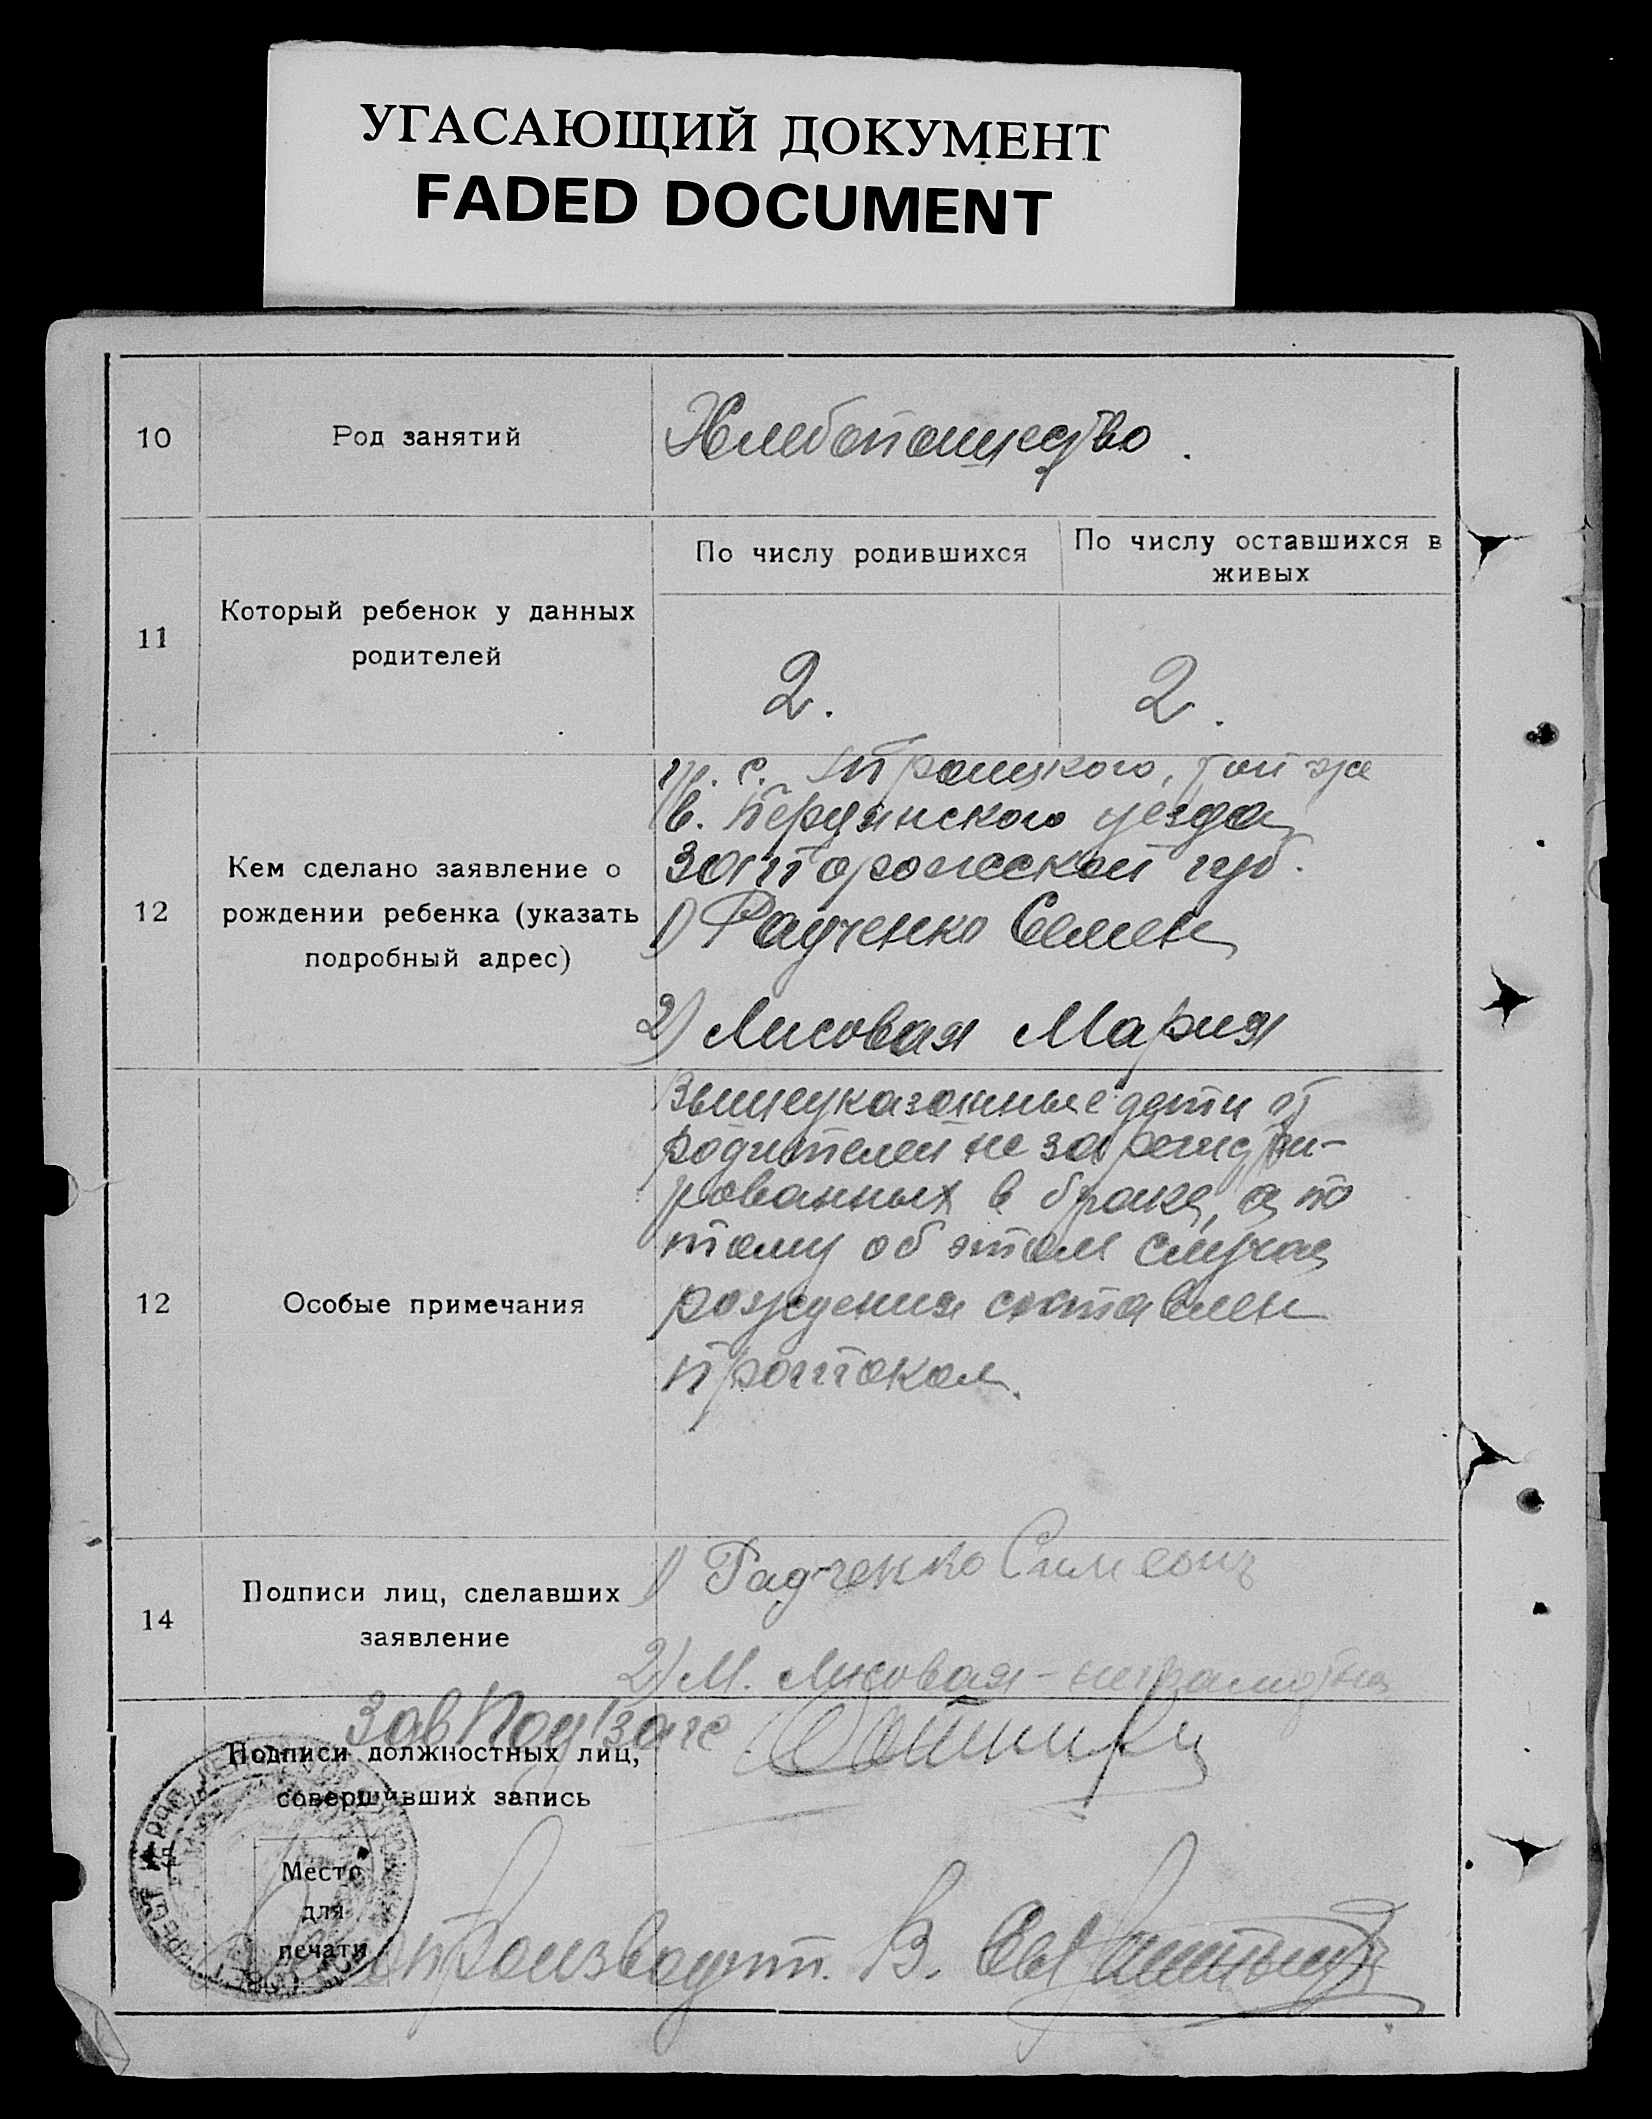 УГАСАЮЩИЙ ДОКУМЕНТ
FADED DOCUMENT
10
Род занятий
Хлебопашество.
11
Который ребенок у данных
родителей
По числу родившихся
По числу оставшихся в
живых
2.
2.
12
Кем сделано заявление о
рождении ребенка (указать
подробный адрес)
с. Троицкого, той же
в. Бердянского уезда
Запорожской губ.
1) Радченко Семен
2) Лисовая Мария
12
Особые примечания
Вышеуказанные дети от
родителей не зарегистри-
рованных в браке, а по
тому об этом случае
рождения составлен
протокол.
14
Подписи лиц, сделавших
заявление
1) Радченко Симеонъ
2) М. Лисовая - неграмотна
ЗавПодЗагс
Подписи должностных лиц,
совершивших запись
15
Место
для
печати
Делопроизводит. В.